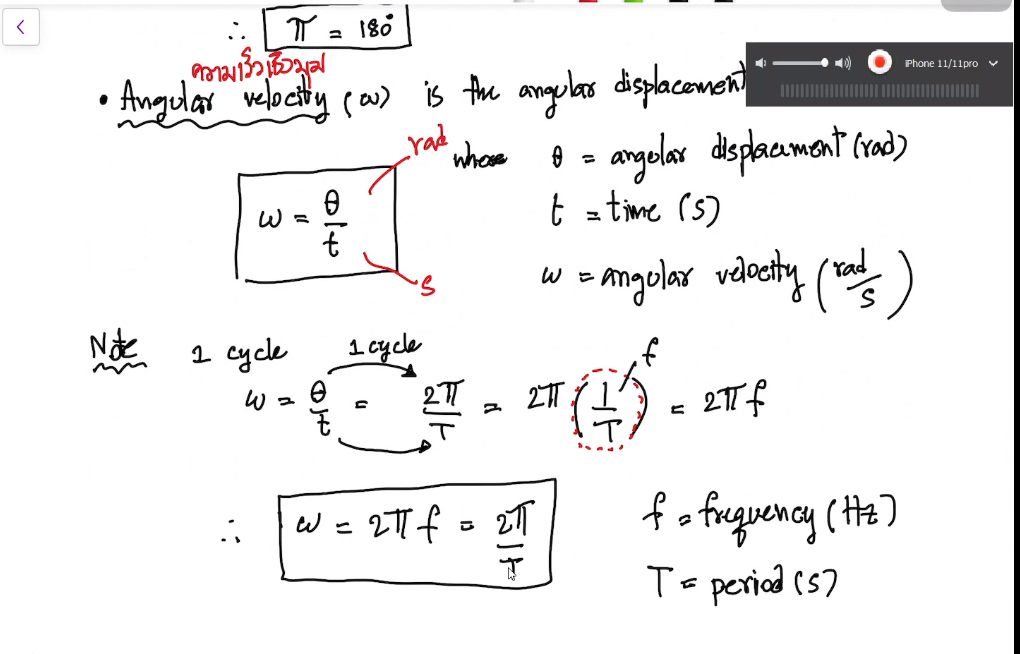 ∴ π = 180°
ความเร็วเชิงมุม
iPhone 11/11pro
• Angular velocity (ω) is the angular displacement
rad
where θ = angular displacement (rad)
ω = θ/t
t = time (s)
s
ω = angular velocity (rad/s)
Note 1 cycle 1 cycle f
ω = θ/t = 2π/T = 2π (1/T) = 2πf
∴ ω = 2πf = 2π/T
f = frequency (Hz)
T = period (s)